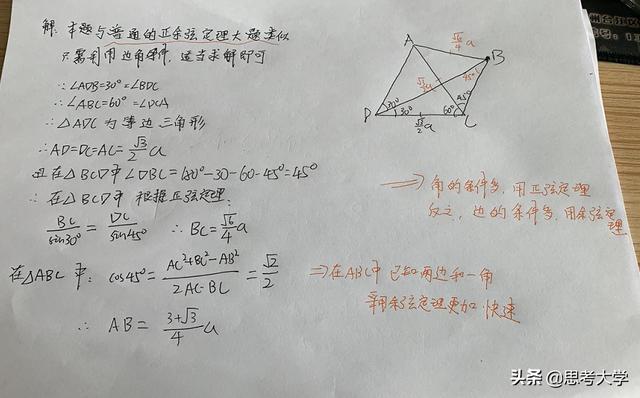 解: 本题与普通的正余弦定理大题类似
只需利用边角条件，适当求解即可
∵∠ADB=30°=∠BDC
∴∠ABC=60°=∠DCA
∴△ADC为等边三角形
∴AD=DC=AC=√3/2 a
又在△BCD中∠DBC=180°-30-60-45°=45°
∴在△BCD中 根据正弦定理:
BC/sin30°=DC/sin45° ∴BC=√6/4 a
在△ABC中: cos45°=AC²+BC²-AB²/2AC·BC=√2/2
∴ AB=3+√3/4 a
A
√6/4 a
B
√3/2 a
45°
30°
30°
60°
45°
D
√3/2 a
C
⇒角的条件多，用正弦定理
反之，边的条件多，用余弦定理
⇒在ABC中 已知两边和一角
用余弦定理更加快速
头条 @思考大学